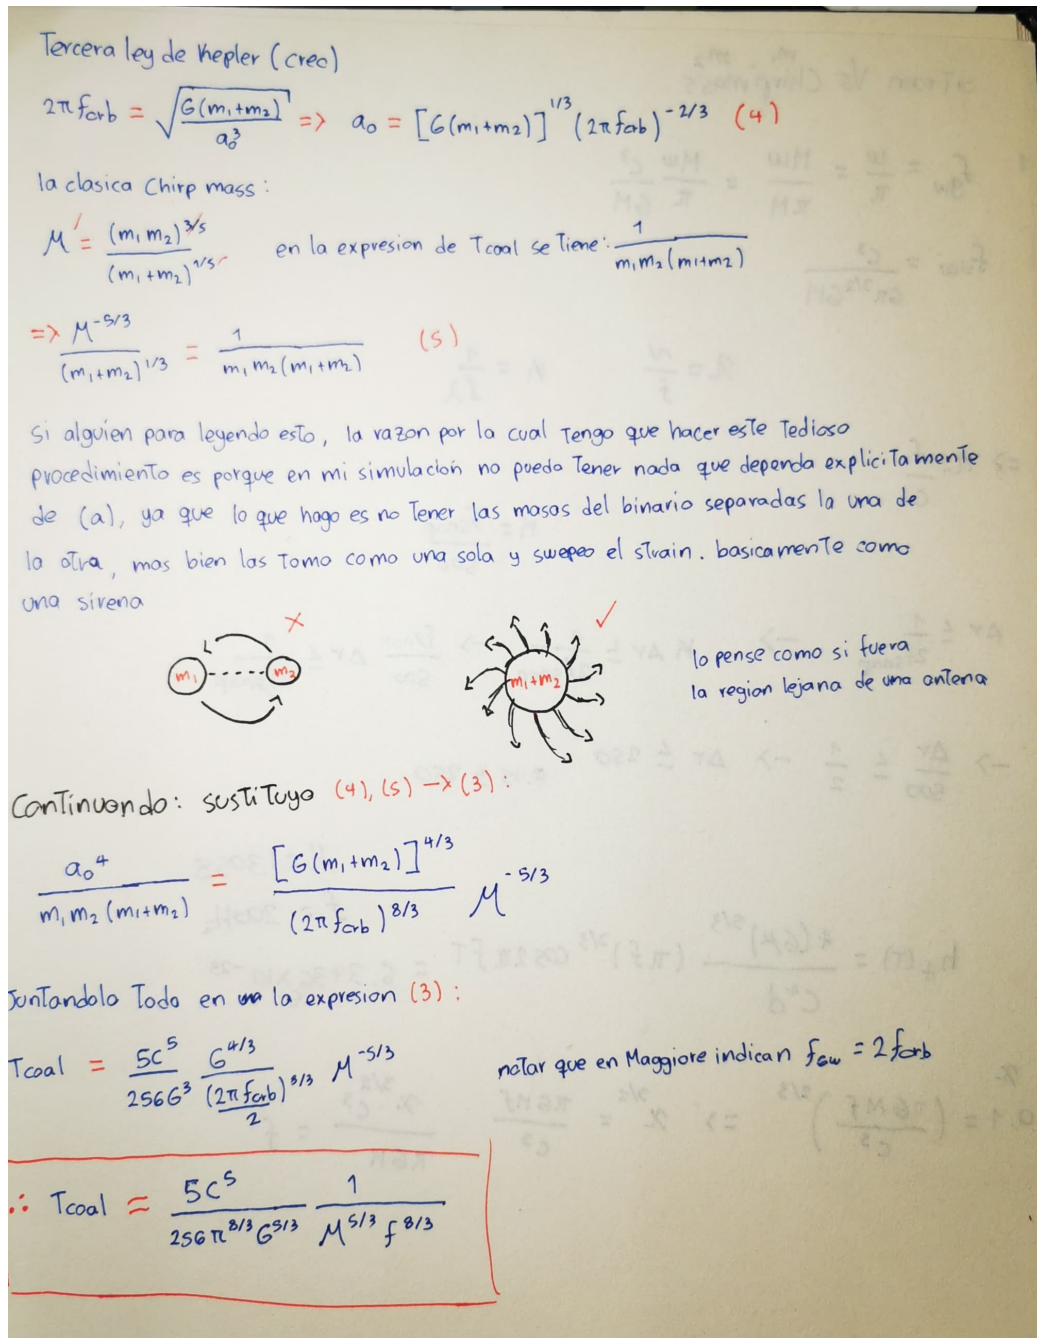 Tercera ley de Kepler (creo)
2π f_orb = √(G(m₁+m₂)/a₀³) => a₀ = [G(m₁+m₂)]^1/3 (2π f_orb)^-2/3 (4)
la clasica Chirp mass:
M = (m₁ m₂)^3/5 / (m₁+m₂)^1/5 en la expresion de Tcoal se Tiene: 1 / m₁m₂(m₁+m₂)
=> M^-5/3 / (m₁+m₂)^1/3 = 1 / m₁ m₂(m₁+m₂) (5)
Si alguien para leyendo esto, la razon por la cual Tengo que hacer este Tedioso
procedimiento es porque en mi simulación no puedo Tener nada que dependa explicitamente
de (a), ya que lo que hago es no Tener las masas del binario separadas la una de
la otra, mas bien las Tomo como una sola y swepeo el strain. basicamente como
una sirena
m₁ m₂ × m₁+m₂ ✓
lo pense como si fuera
la region lejana de una antena
Continuando: sustituyo (4), (5) → (3):
a₀⁴ / m₁ m₂ (m₁+m₂) = [G(m₁+m₂)]^4/3 / (2π f_orb)^8/3 M^-5/3
Juntandolo Todo en la expresion (3):
Tcoal = 5C⁵ / 256G³ G^4/3 / (2π f_orb / 2)^8/3 M^-5/3 notar que en Maggiore indican f_GW = 2f_orb
∴ Tcoal = 5C⁵ / 256 π^8/3 G^5/3 1 / M^5/3 f^8/3